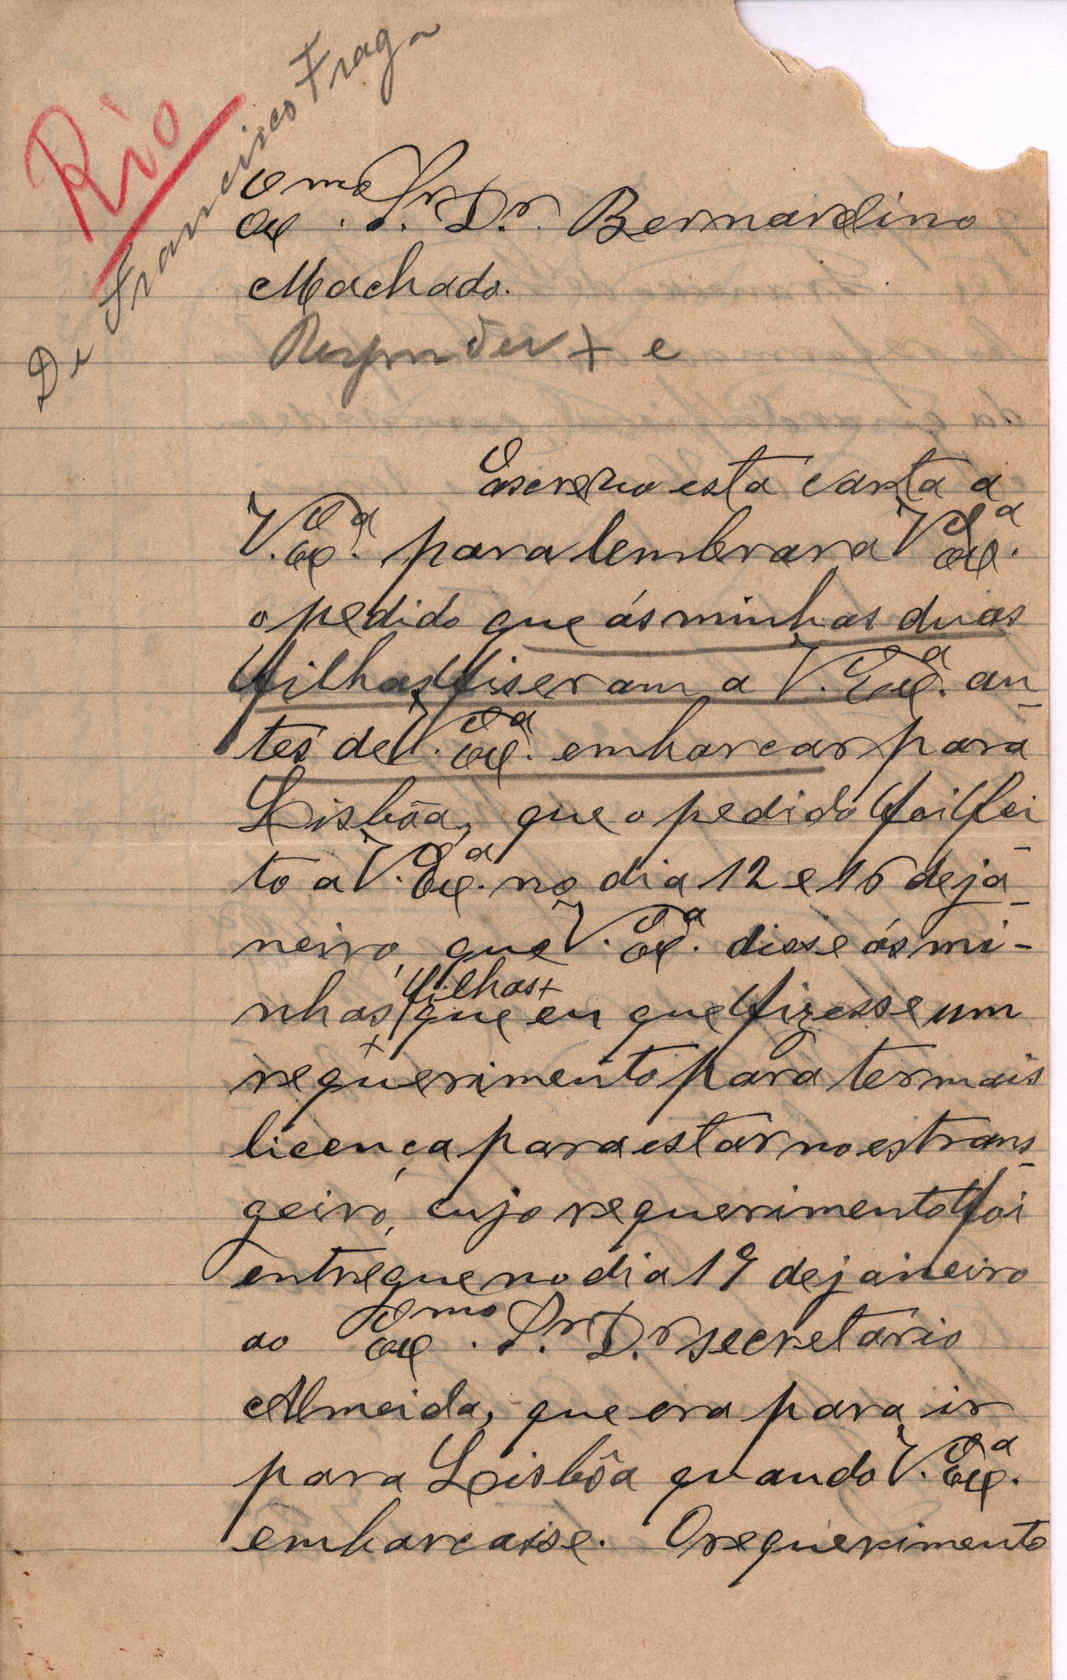 Rio
De Francisco Fraga
Exmo. Sr. Dr. Bernardino
Machado.
Responder + e
Escrevo esta carta a
V. Exa. para lembrar a V. Exa.
o pedido que ás minhas duas
filhas fiseram a V. Exa. an-
tes de V. Exa. embarcar para
Lisbôa, que o pedido foi fei-
to a V. Exa. no dia 12 e 16 de ja-
neiro, que V. Exa. disse ás mi-
nhas filhas + que eu que fizesse um
requerimento para ter mais
licença para estar no estran-
geiro, cujo requerimento foi
entregue no dia 19 de janeiro
ao Exmo. Sr. Dr. secretario
Almeida, que era para ir
para Lisbôa quando V. Exa.
embarcasse. O requerimento